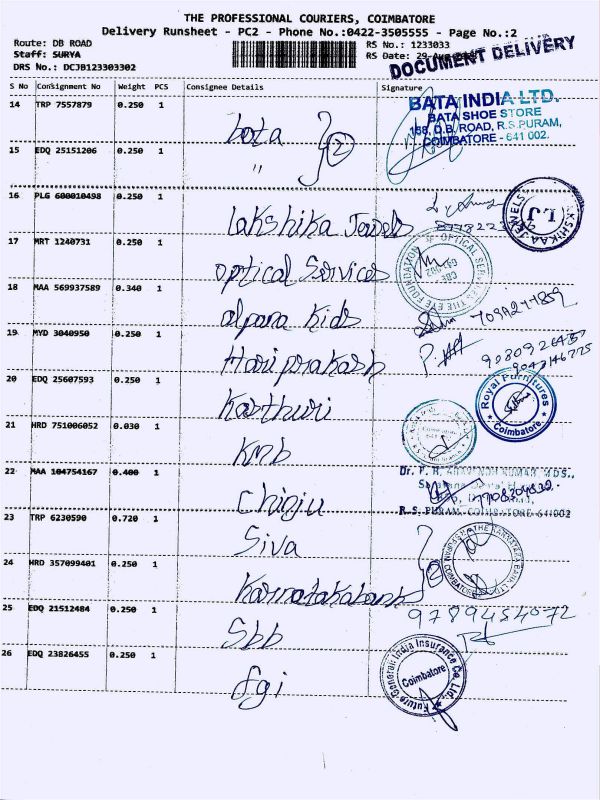 THE PROFESSIONAL COURIERS, COIMBATORE
Delivery Runsheet - PC2 - Phone No.:0422-3505555 - Page No.:2
Route: DB ROAD
RS No.: 1233033
Staff: SURYA
RS Date: 29-Aug
DRS No.: DCJB123303302
DOCUMENT DELIVERY
S No Consignment No Weight PCS Consignee Details Signature
14 TRP 7557879 0.250 1
bata
2
BATA INDIA LTD.
BATA SHOE STORE
168, D.B. ROAD, R.S.PURAM,
COIMBATORE - 641 002.
15 EDQ 25151206 0.250 1
"
16 PLG 600010498 0.250 1
Lakshika Jewels
LAKSHIKAA JEWELS
LJ
17 MRT 1240731 0.250 1
optical Services
OPTICAL SERVICES THE EYE FOUNDATION
CBE
641 002
18 MAA 569937589 0.340 1
alpana Kids
19 MYD 3040950 0.250 1
Hari prakash
20 EDQ 25607593 0.250 1
Kasthuri
Royal Furnitures
Coimbatore
21 HRD 751006052 0.030 1
Kmb
22 MAA 104754167 0.400 1
Chinju
Dr. P. R.
R.S. PURAM, COIMBATORE 641002
23 TRP 6230590 0.720 1
Siva
24 HRD 357099401 0.250 1
Karnatakabank
2
THE KARNATAKA BANK LTD.
COIMBATORE
25 EDQ 21512484 0.250 1
Sbb
9789454072
26 EDQ 23826455 0.250 1
fgi
Future Generali India Insurance Co. Ltd.
Coimbatore